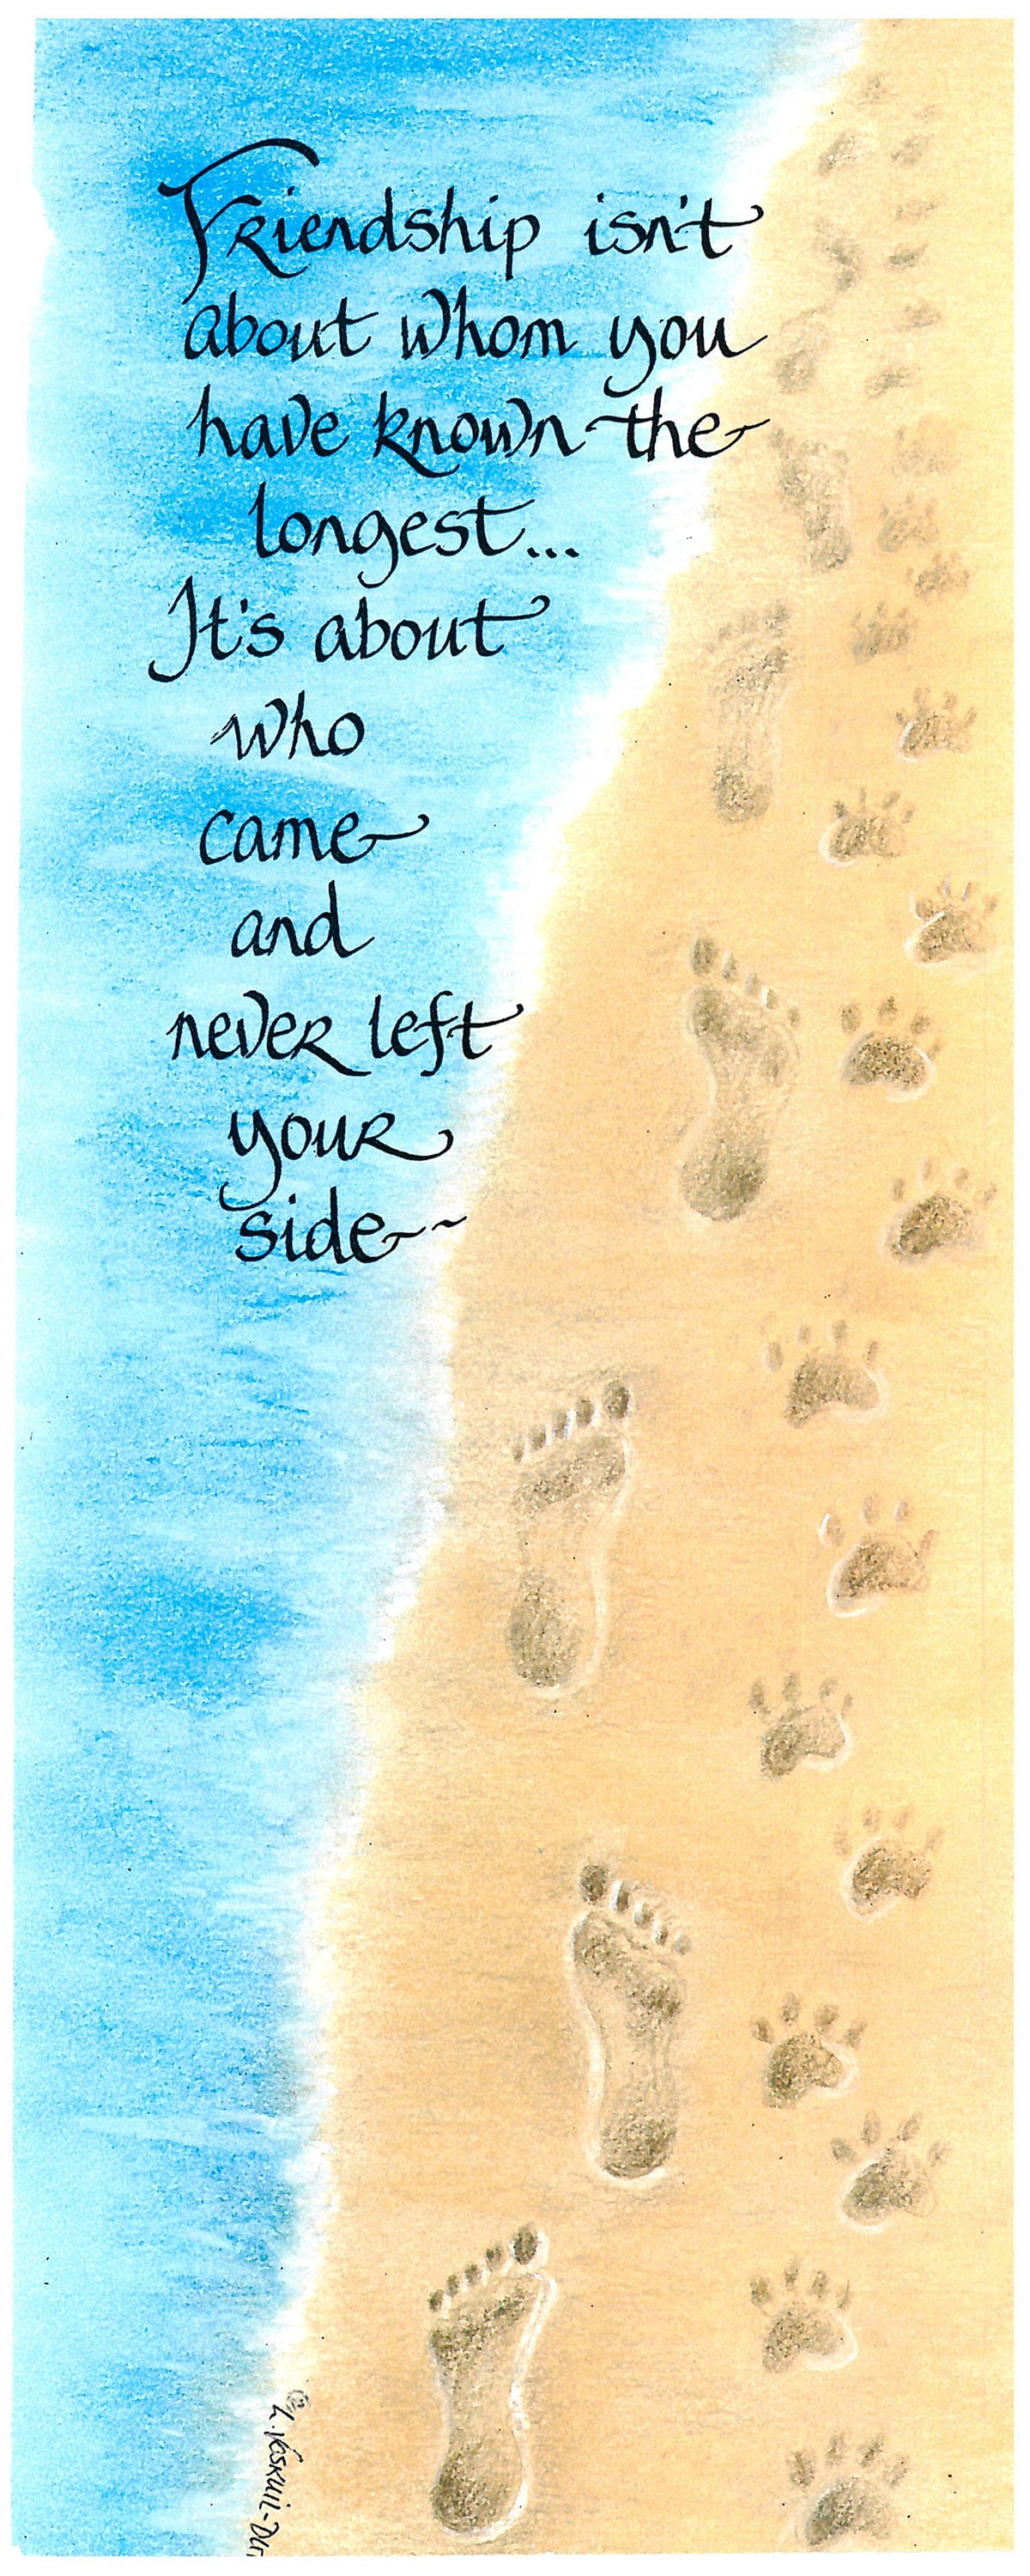 Friendship isn't
about whom you
have known the
longest...
It's about
who
came
and
never left
your
side~~
© L. Voskuil-Dut